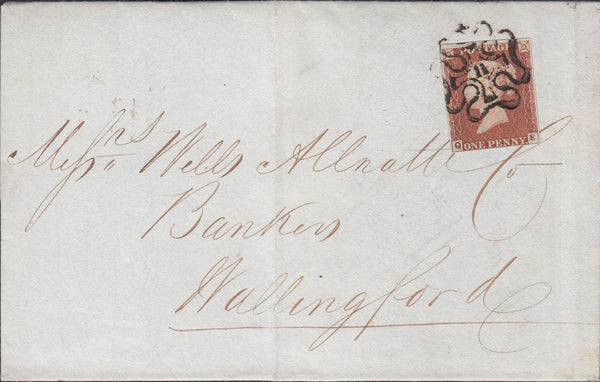 POSTAGE
11
Q E
ONE PENNY
Messrs Wells Allnatt & Co
Bankers
Wallingford